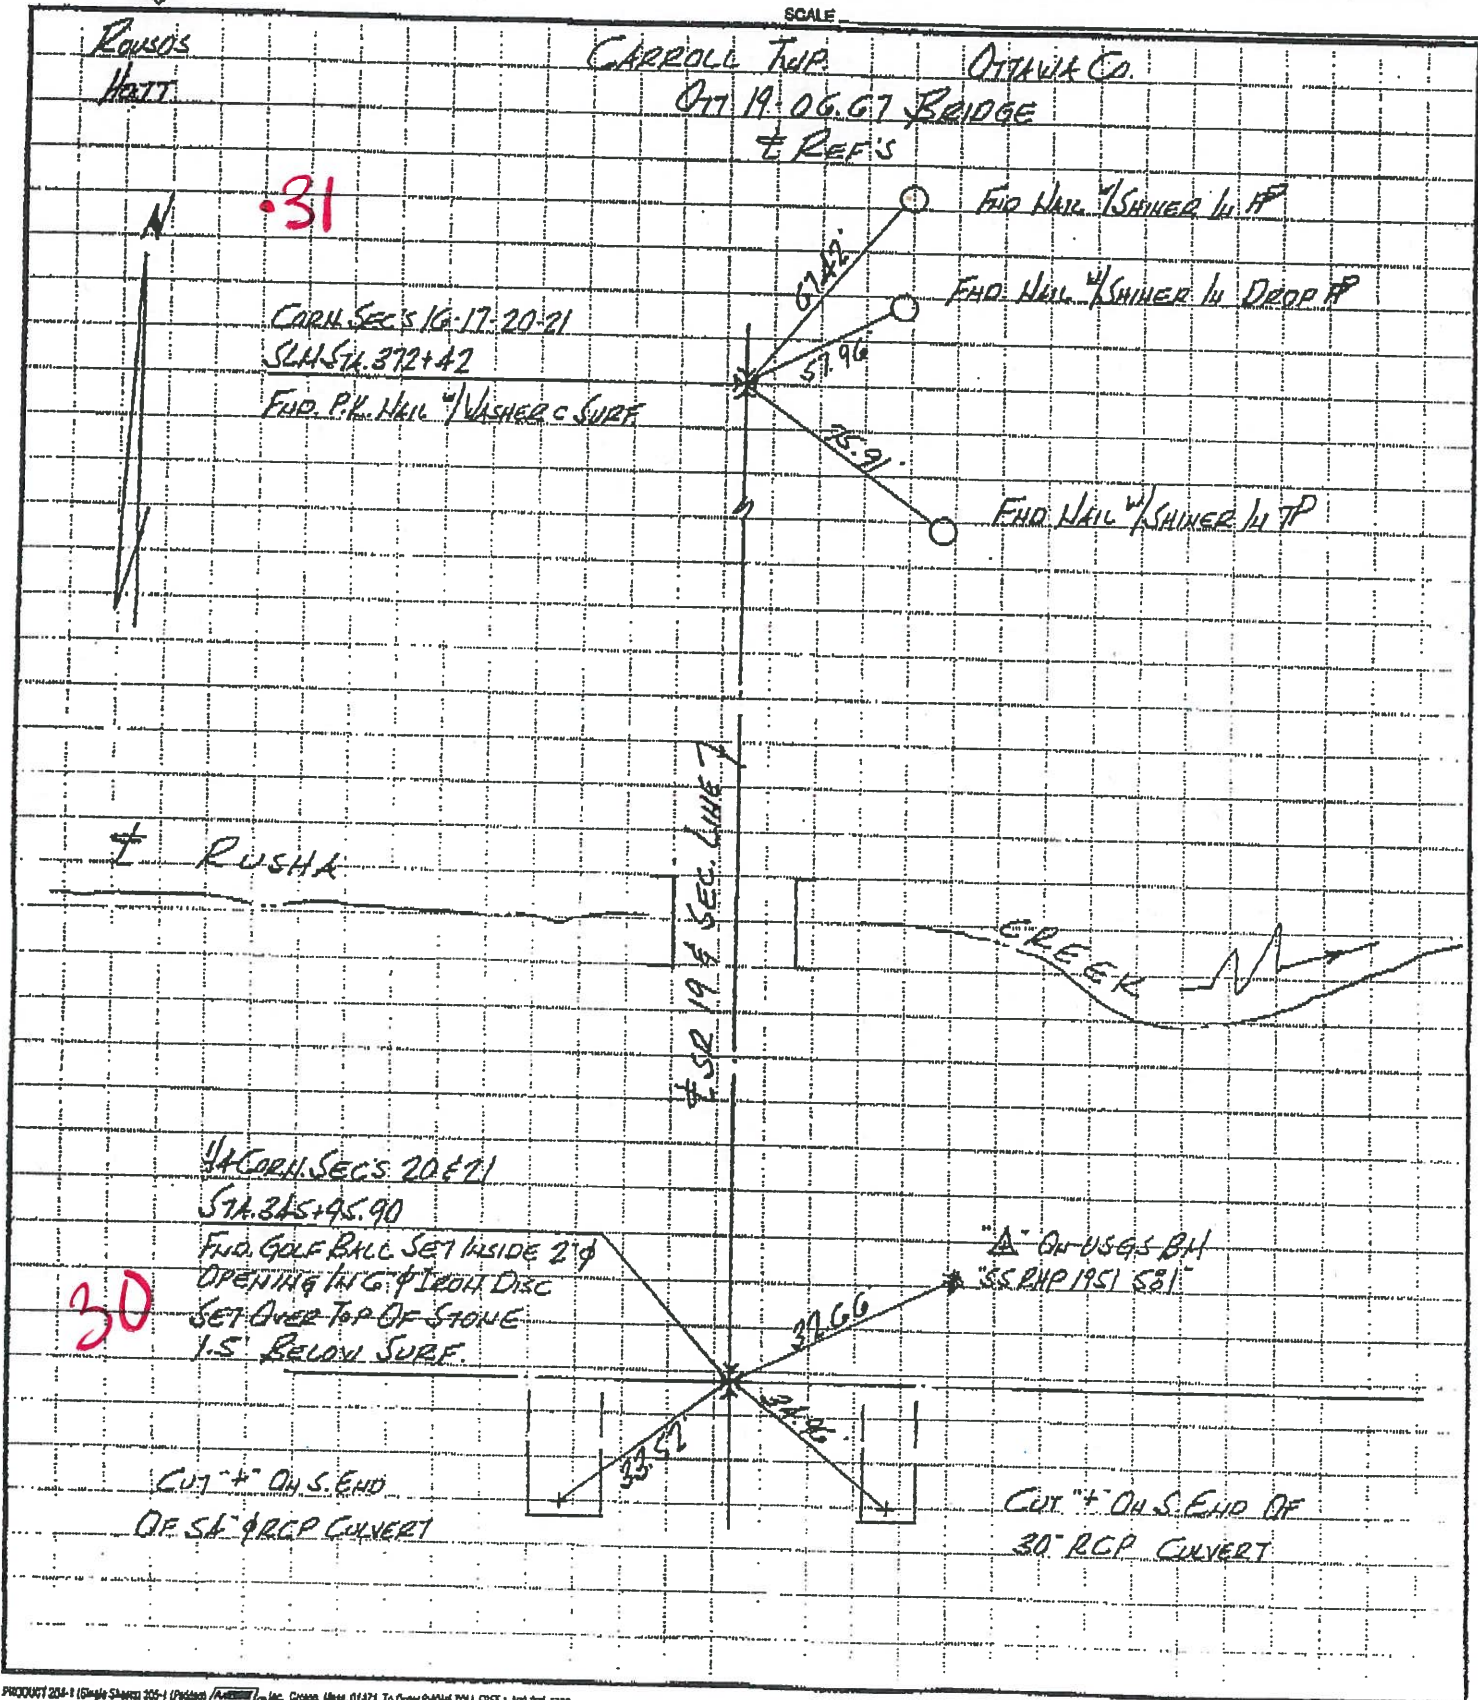 SCALE
ROUSOS
HOTT
CARROLL TWP. OTTAWA CO.
OTT 19-06.67 BRIDGE
℄ REF'S
.31
N
FND NAIL W/SHINER IN PP
67.42'
FND. NAIL W/SHINER IN DROP PP
57.96'
CORN. SEC'S 16-17-20-21
SLM STA. 372+42
FND. P.K. NAIL W/WASHER @ SURF.
75.91'
FND NAIL W/SHINER IN TP
℄ SR 19 & SEC. LINE
℄ RUSHA
CREEK
1/4 CORN. SEC'S 20 & 21
STA. 345+95.90
FND. GOLF BALL SET INSIDE 2"φ
OPENING IN 6"φ IRON DISC
SET OVER TOP OF STONE
1.5' BELOW SURF.
30
"△" ON USGS BM
"SS RHP 1951 581"
37.66
33.52'
34.96'
CUT "+" ON S. END
OF 54"φ RCP CULVERT
CUT "+" ON S. END OF
30" RCP CULVERT
PRODUCT 204-1 (Single Sheets) 205-1 (Padded)